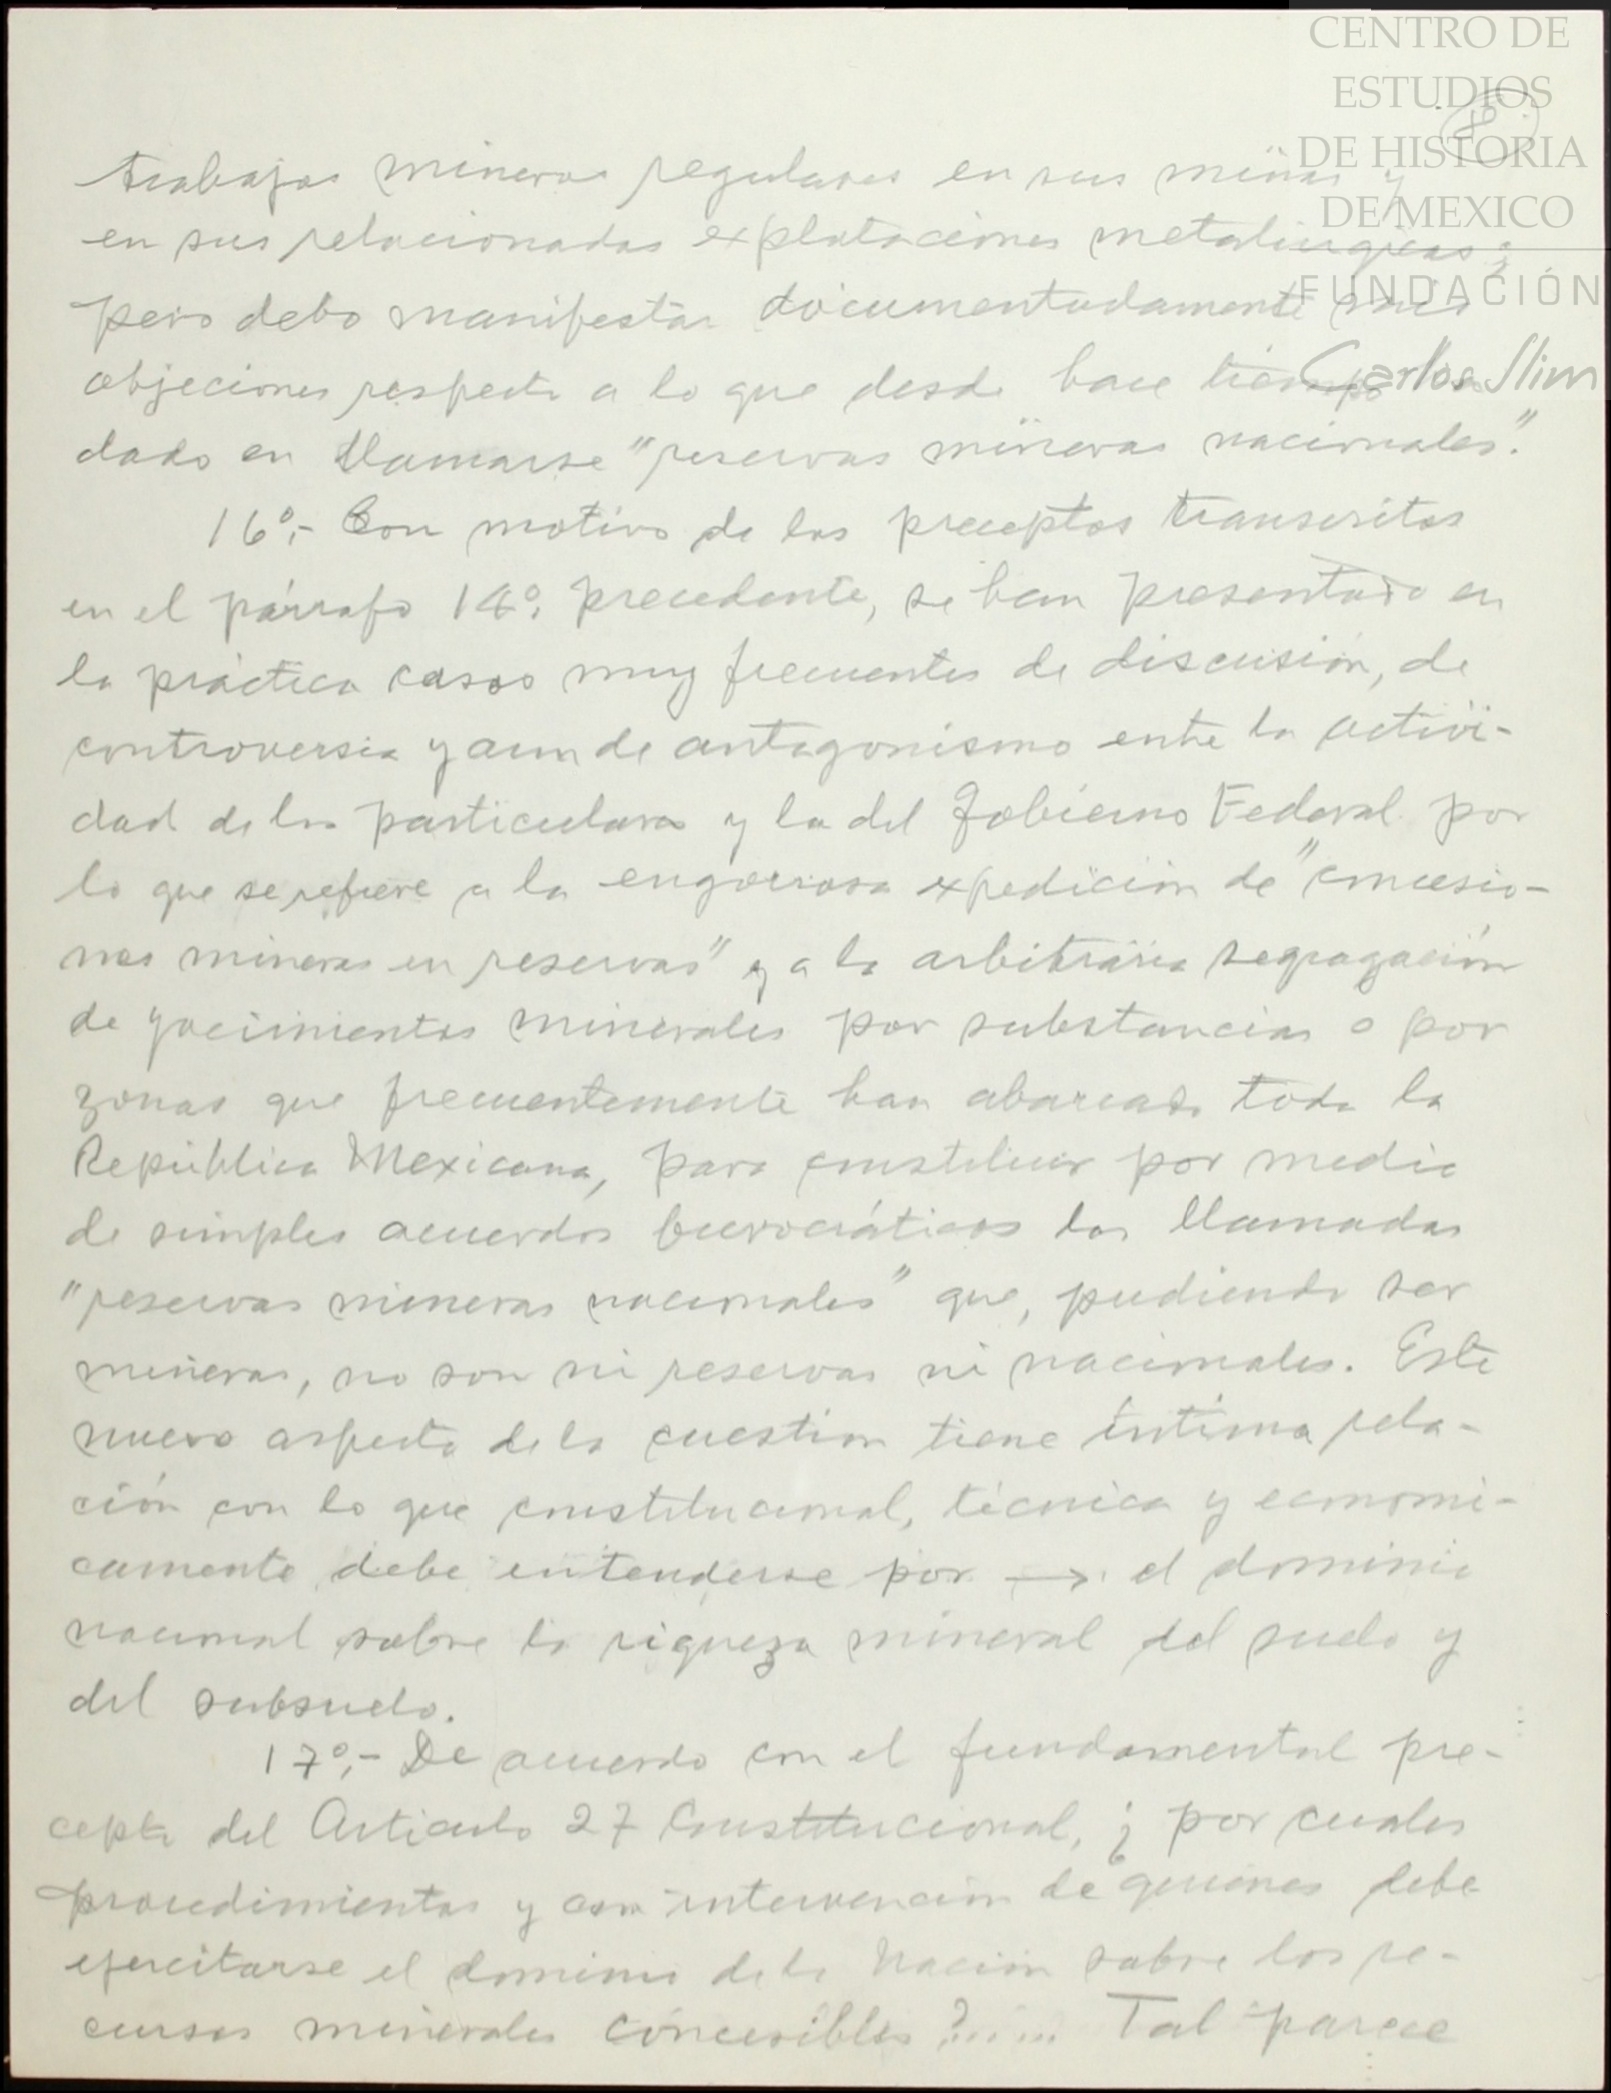 CENTRO DE
ESTUDIOS
DE HISTORIA
DE MEXICO
FUNDACIÓN
Carlos Slim
trabajos mineros regulares en sus minas y
en sus relacionadas explotaciones metalúrgicas;
pero debo manifestar documentadamente mis
objeciones respecto a lo que desde hace tiempo
dado en llamarse "reservas mineras nacionales".
16º.- Con motivo de los preceptos transcritos
en el párrafo 14º. precedente, se han presentado en
la práctica casos muy frecuentes de discusión, de
controversia y aun de antagonismo entre la activi-
dad de los particulares y la del Gobierno Federal por
lo que se refiere a la engorrosa expedición de "concesio-
nes mineras en reservas" y a la arbitraria segregación
de yacimientos minerales por substancias o por
zonas que frecuentemente han abarcado toda la
República Mexicana, para constituir por medio
de simples acuerdos burocráticos las llamadas
"reservas mineras nacionales" que, pudiendo ser
mineras, no son ni reservas ni nacionales. Este
nuevo aspecto de la cuestion tiene íntima rela-
ción con lo que constitucional, técnica y economi-
camente debe entenderse por → el dominio
nacional sobre la riqueza mineral del suelo y
del subsuelo.
17º.- De acuerdo con el fundamental pre-
cepto del Articulo 27 Constitucional, ¿ por cuales
procedimientos y con intervención de quienes debe
ejercitarse el dominio de la Nación sobre los re-
cursos minerales concesibles ?...... Tal parece